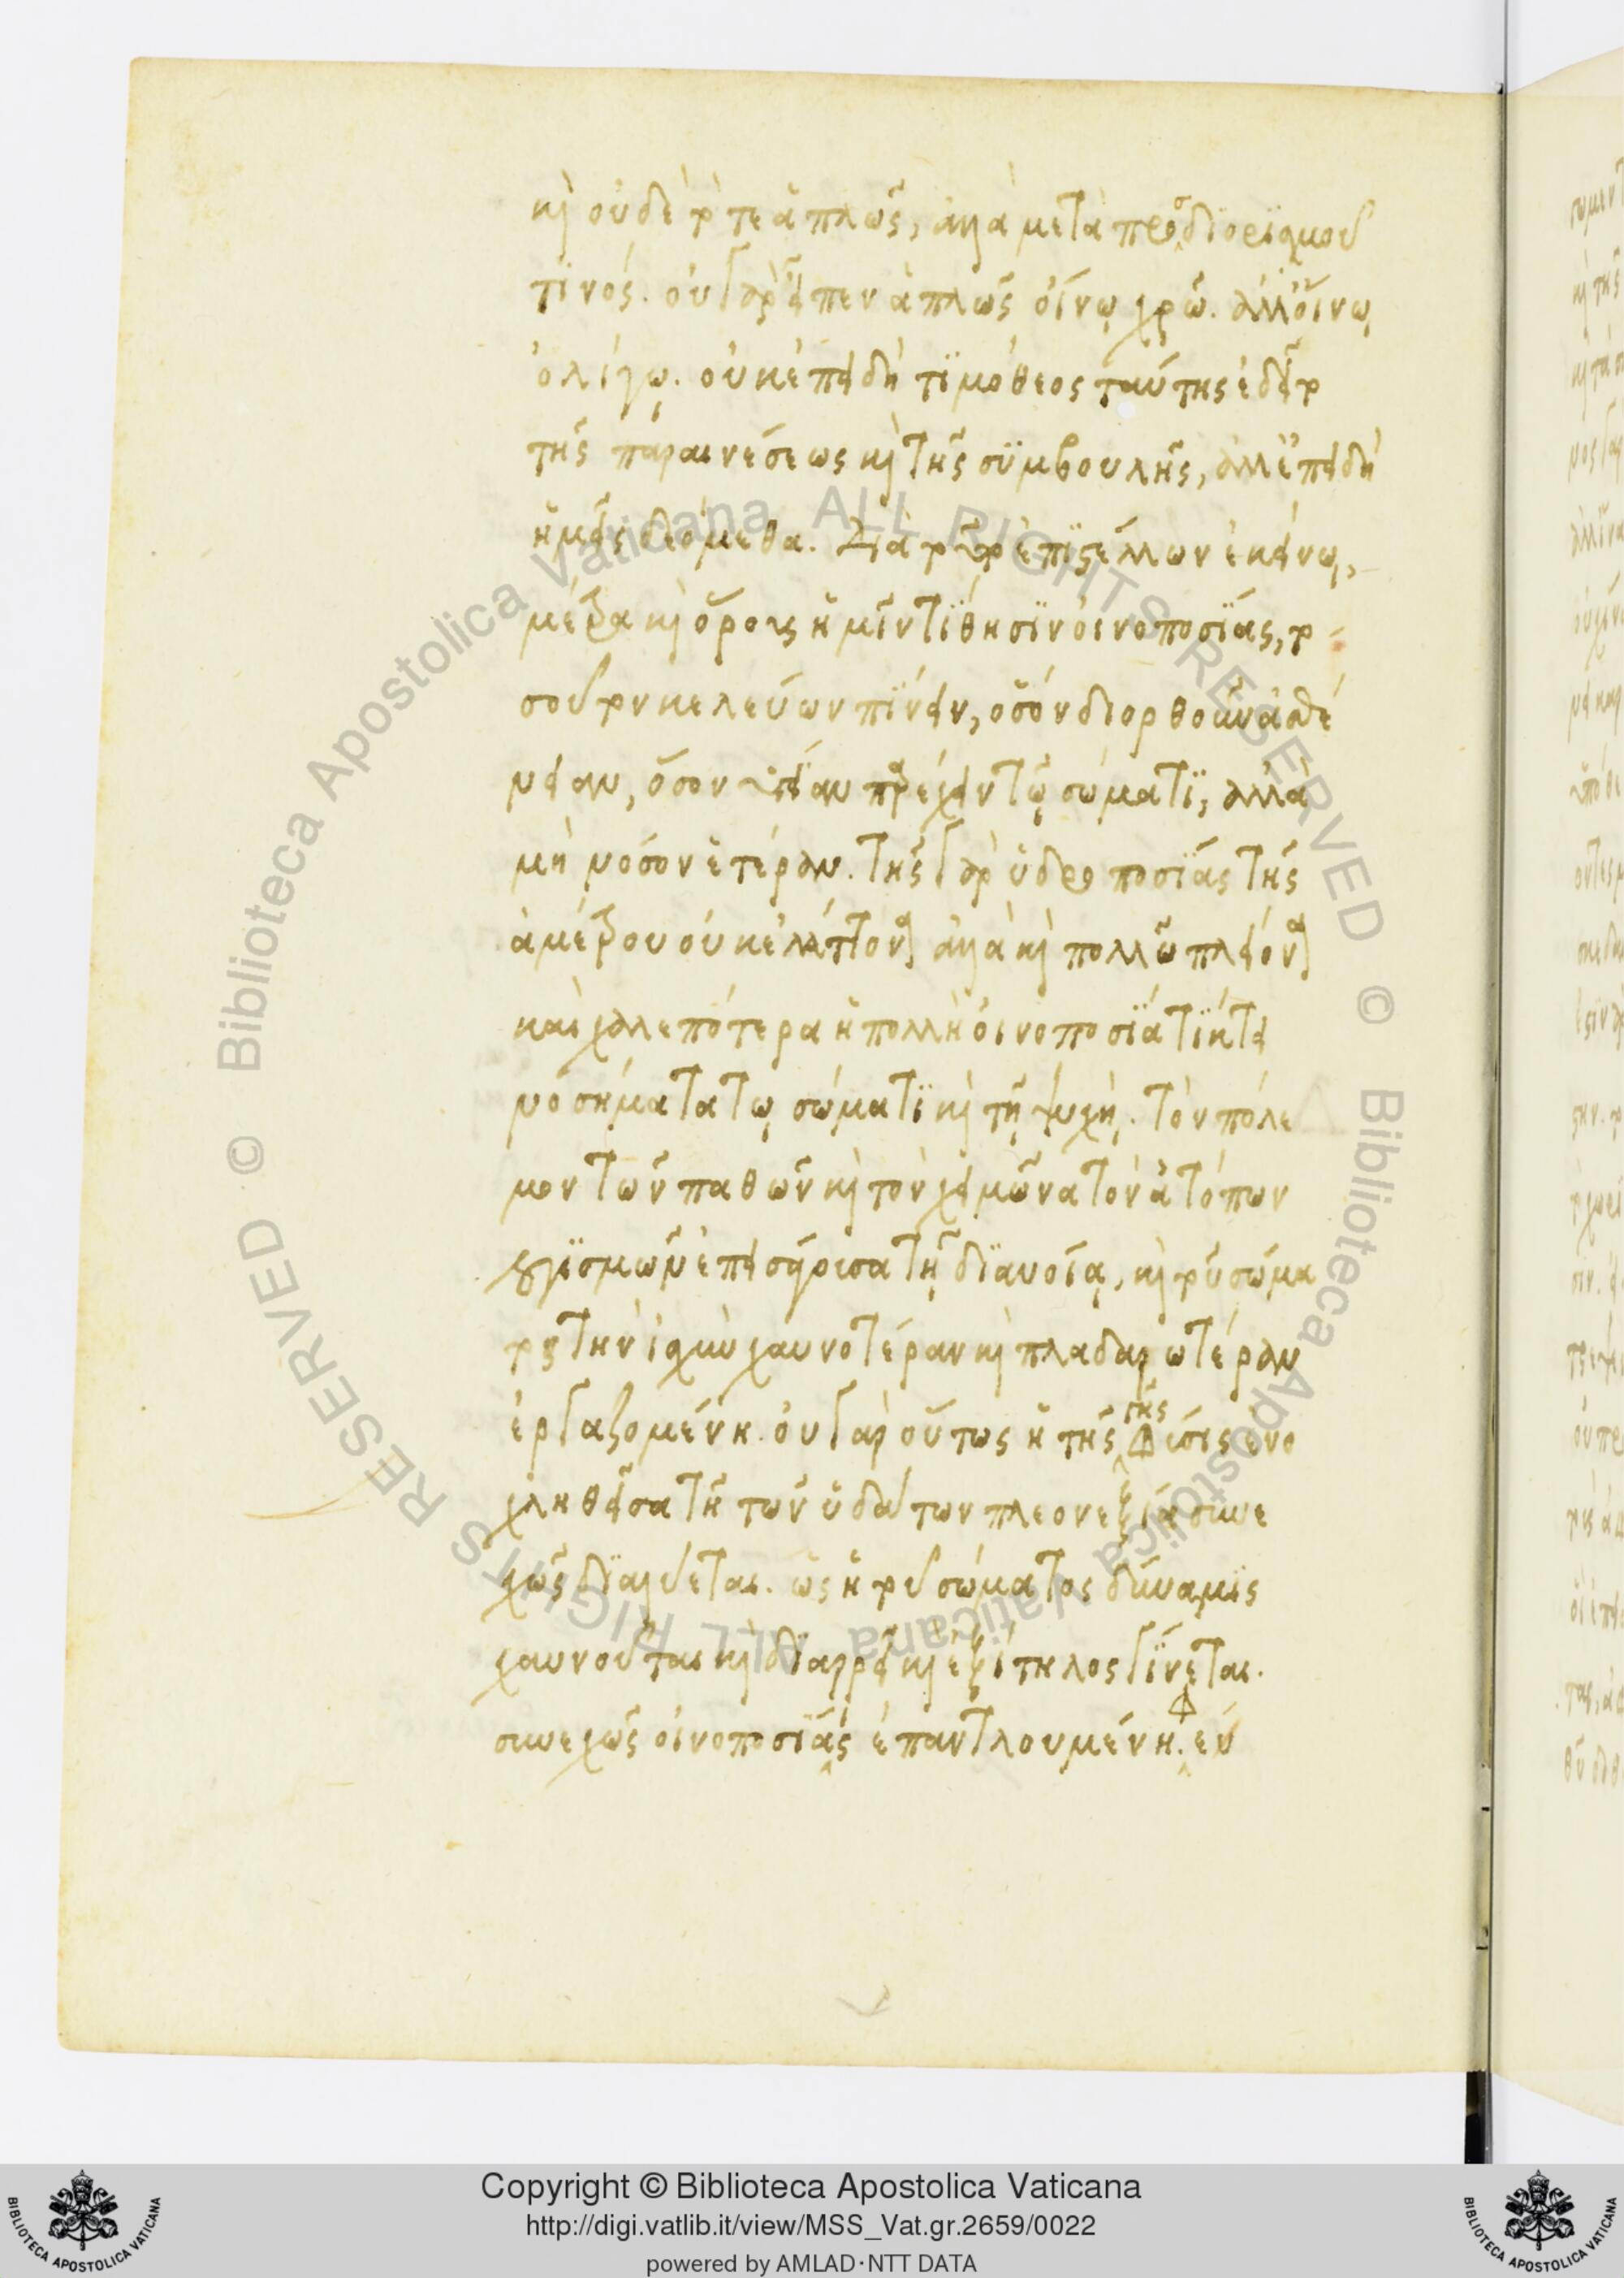 καὶ οὐδὲ τότε ἁπλῶς, ἀλλὰ μετὰ προσδιορισμοῦ
τινός. οὐ γὰρ εἶπεν ἁπλῶς οἴνῳ χρῶ. ἀλλ' οἴνῳ
ὀλίγῳ. οὐκ ἐπειδὴ τϊμόθεος ταύτης ἐδεῖτο
τῆς παραινέσεως καὶ τῆς συμβουλῆς, ἀλλ' ἐπειδὴ
ἡμεῖς δεόμεθα. διὰ τοῦτο ἐπιστέλλων ἐκείνῳ,
μέτρα καὶ ὅρους ἡμῖν τίθησιν οἰνοποσίας, το
σοῦτον κελεύων πίνειν, ὅσον διορθοῦν ἀσθέ
νειαν, ὅσον ὑγείαν παρέχειν τῷ σώματι, ἀλλὰ
μὴ νόσον ἑτέραν. τῆς γὰρ ὑδροποσίας τῆς
ἀμέτρου οὐκ ἐλάττονα ἀλλὰ καὶ πολλῷ πλείονα
καὶ χαλεπότερα ἡ πολλὴ οἰνοποσία τίκτει
νοσήματα τῷ σώματι καὶ τῇ ψυχῇ. τὸν πόλε
μον τῶν παθῶν καὶ τὸν χειμῶνα τὸν ἀτόπων
λογισμῶν ἐπεισάγουσα τῇ διανοίᾳ, καὶ τοῦ σώμα
τος τὴν ἰσχὺν χαυνοτέραν καὶ πλαδαρωτέραν
ἐργαζομένη. οὐ γὰρ οὕτως ἡ τῆς γῆς φύσις ἐνο
χληθεῖσα τῇ τῶν ὑδάτων πλεονεξίᾳ συνε
χῶς διαλύεται. ὡς ἡ τοῦ σώματος δύναμις
χαυνοῦται καὶ διαρρεῖ καὶ ἐξίτηλος γίνεται.
συνεχῶς οἰνοποσίας ἐπαντλουμένη. ἐν
Copyright © Biblioteca Apostolica Vaticana
http://digi.vatlib.it/view/MSS_Vat.gr.2659/0022
powered by AMLAD·NTT DATA